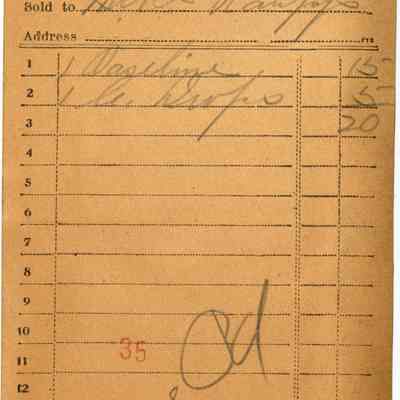 Sold to
Address
1 1 Vaseline 15
2 1 Drops 5
3 20
4
5
6
7
8
9
10
35
11
12